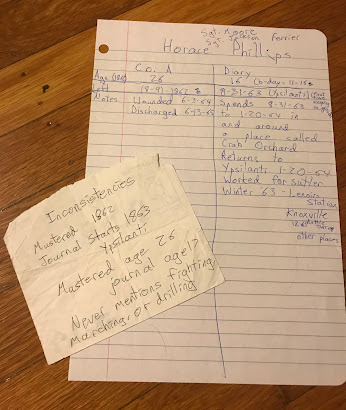 Sgt. Moore
Sgt. Ferrier
Horace Phillips
Co. A
Age 26
Left (8-9) 1862
Notes Wounded 6-3-64
Discharged
Diary
16 (b-day = 11-15
8-31-63 (Ypsilanti)
Spends 8-31-63
to 1-20-64 in
and around
a place called
Crab Orchard
Returns to
Ypsilanti 1-20-64
Worked for Sutler
Winter 63 - Lenois
Station
Knoxville
other places
Inconsistencies
Mustered 1862
Journal Starts 1863
Ypsilanti
Mustered age 26
journal age 17
Never mentions fighting,
marching, or drilling